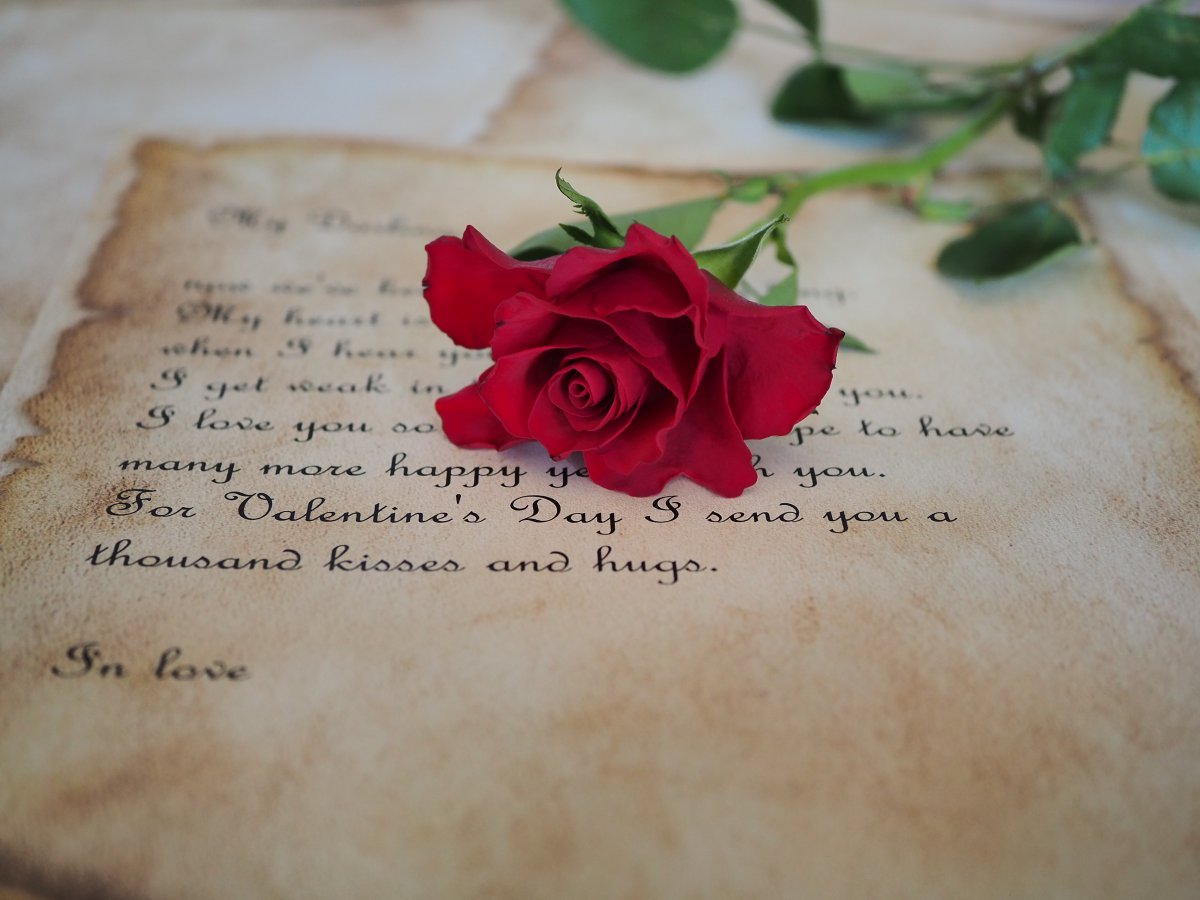 My
now we've
My heart is
when I hear
I get weak in you.
I love you so to have
many more happy you.
For Valentine's Day I send you a
thousand kisses and hugs.
In love